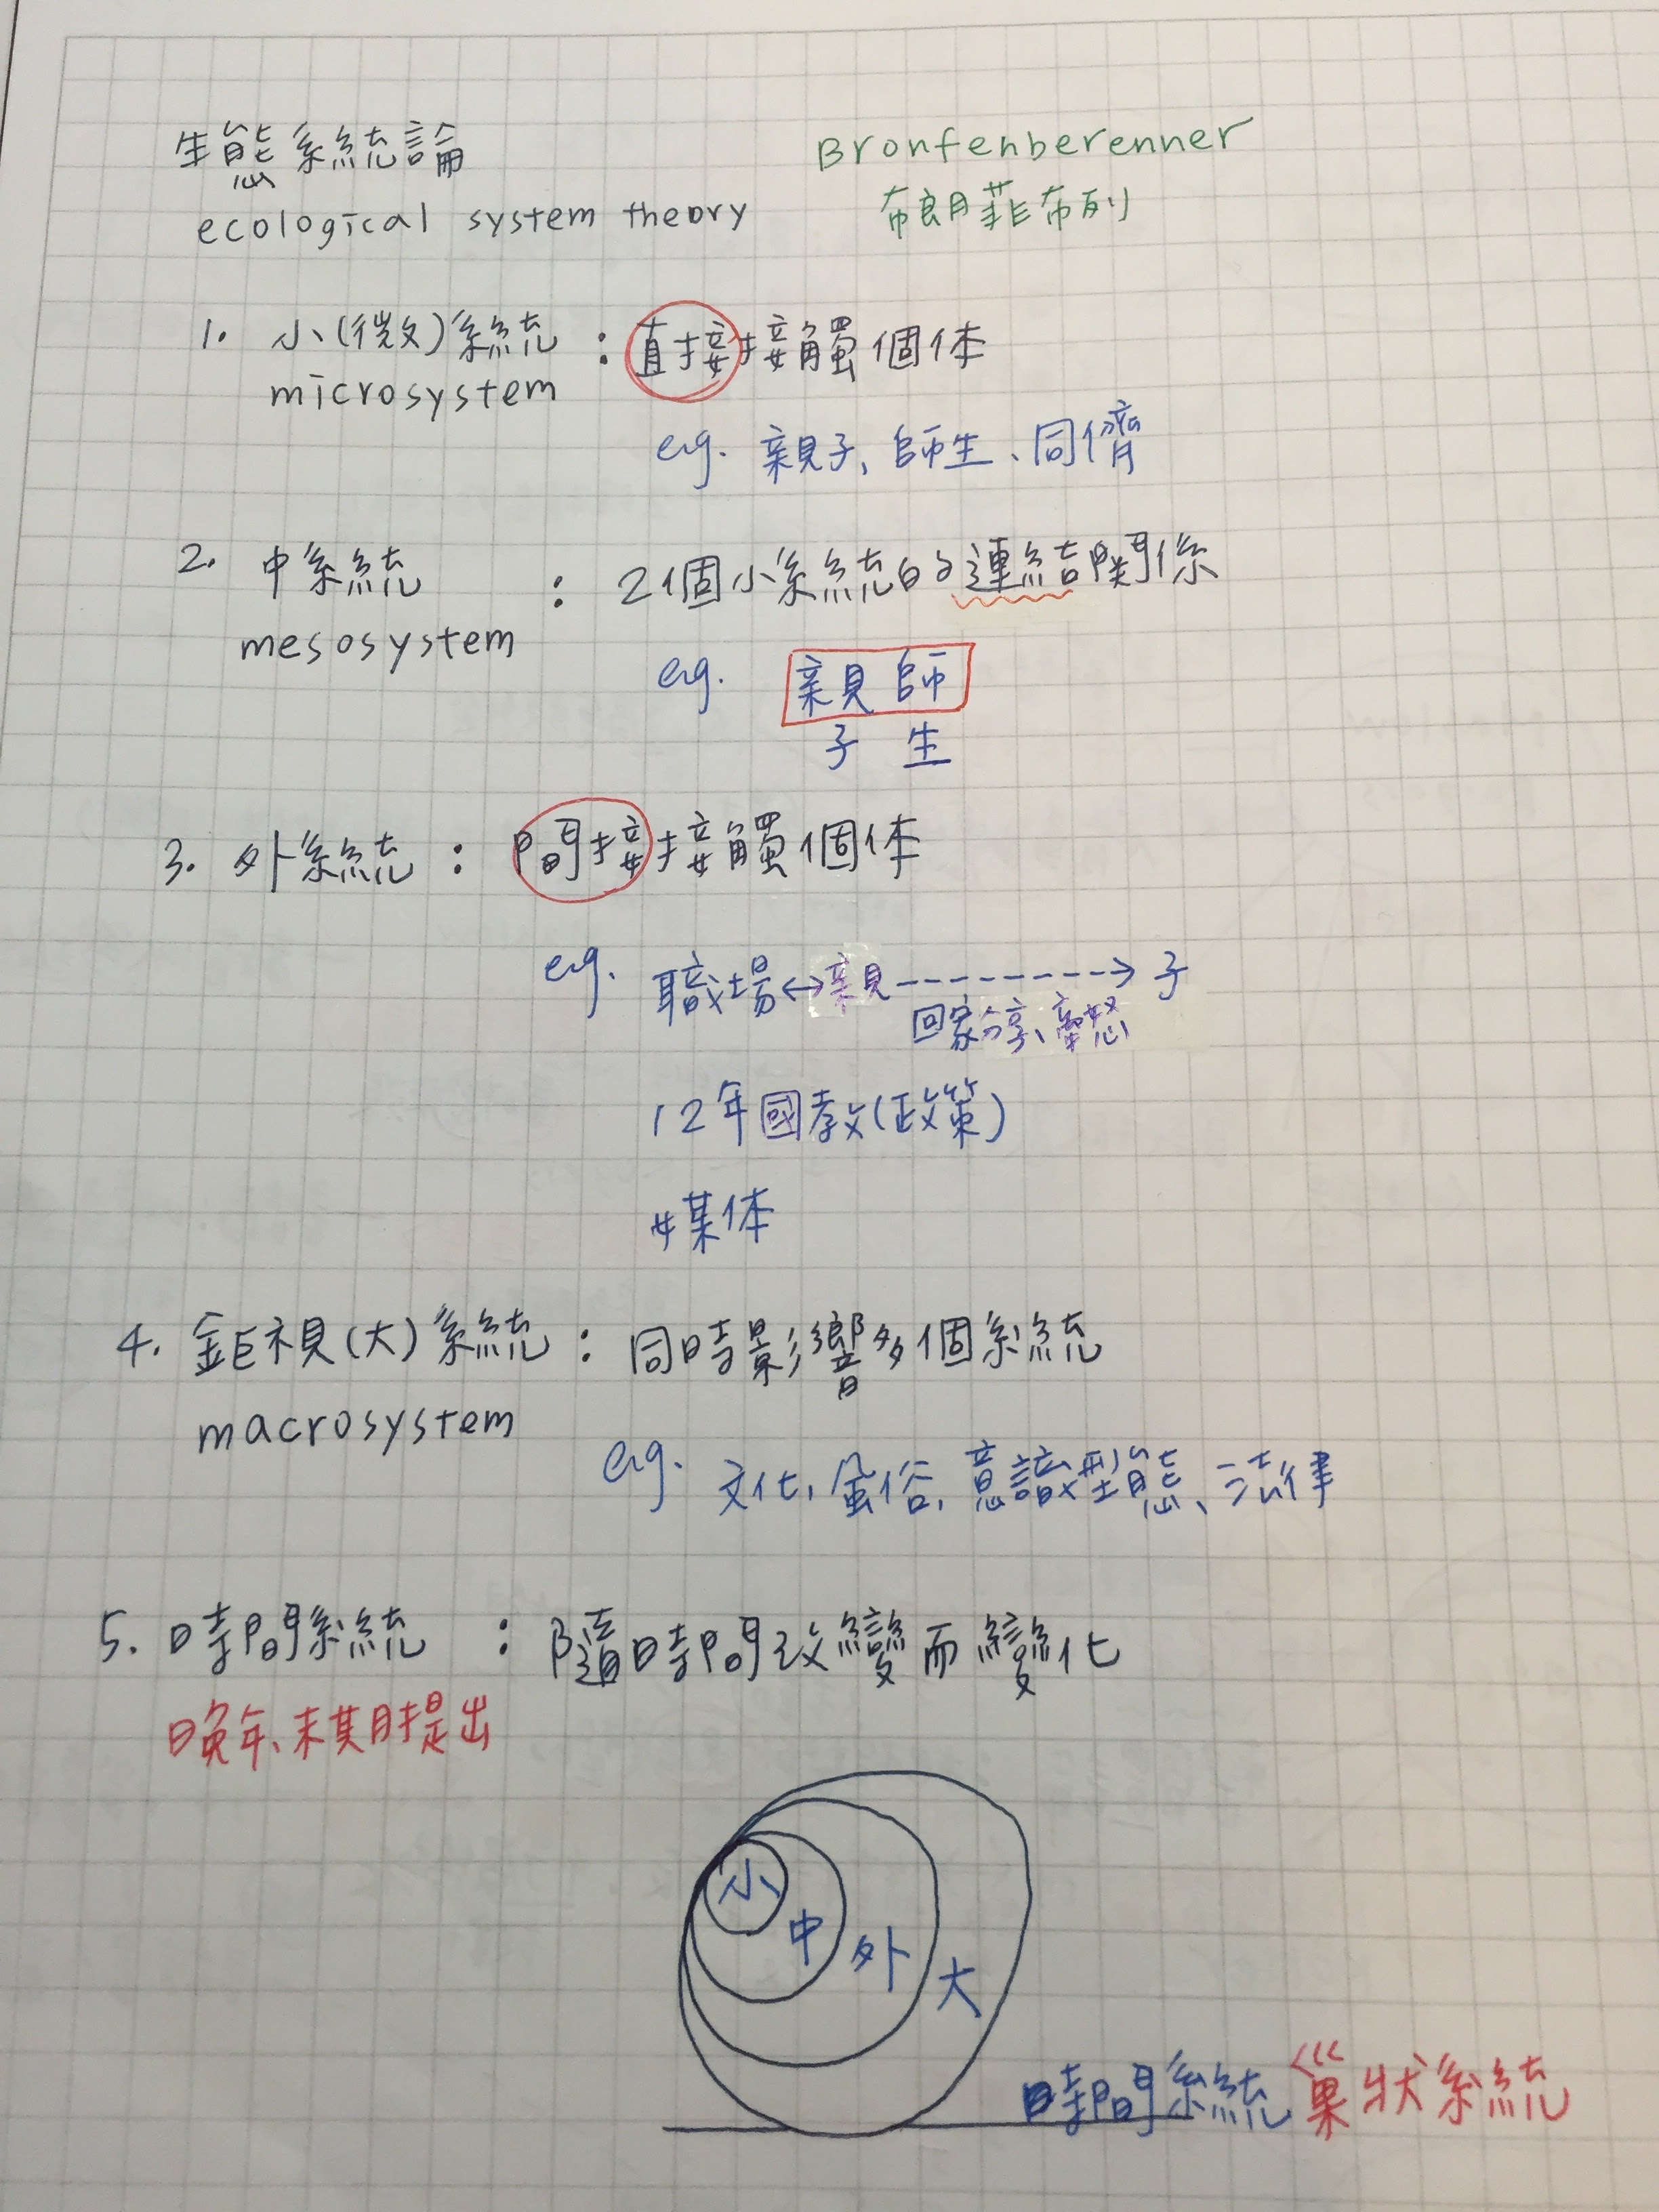 生態系統論
ecological system theory
Bronfenberenner
布朗菲布列
1. 小(微)系統 : 直接接觸個体
microsystem
eg. 親子、師生、同儕
2. 中系統 : 2個小系統的連結関係
mesosystem
eg. 親師
子 生
3. 外系統 : 間接接觸個体
eg. 職場↔親--------→子
回家分享、遷怒
12年國教(政策)
媒体
4. 鉅視(大)系統 : 同時影響多個系統
macrosystem
eg. 文化、風俗、意識型態、法律
5. 時間系統 : 隨時間改變而變化
晚年、末期提出
小
中
外
大
時間系統 巢狀系統